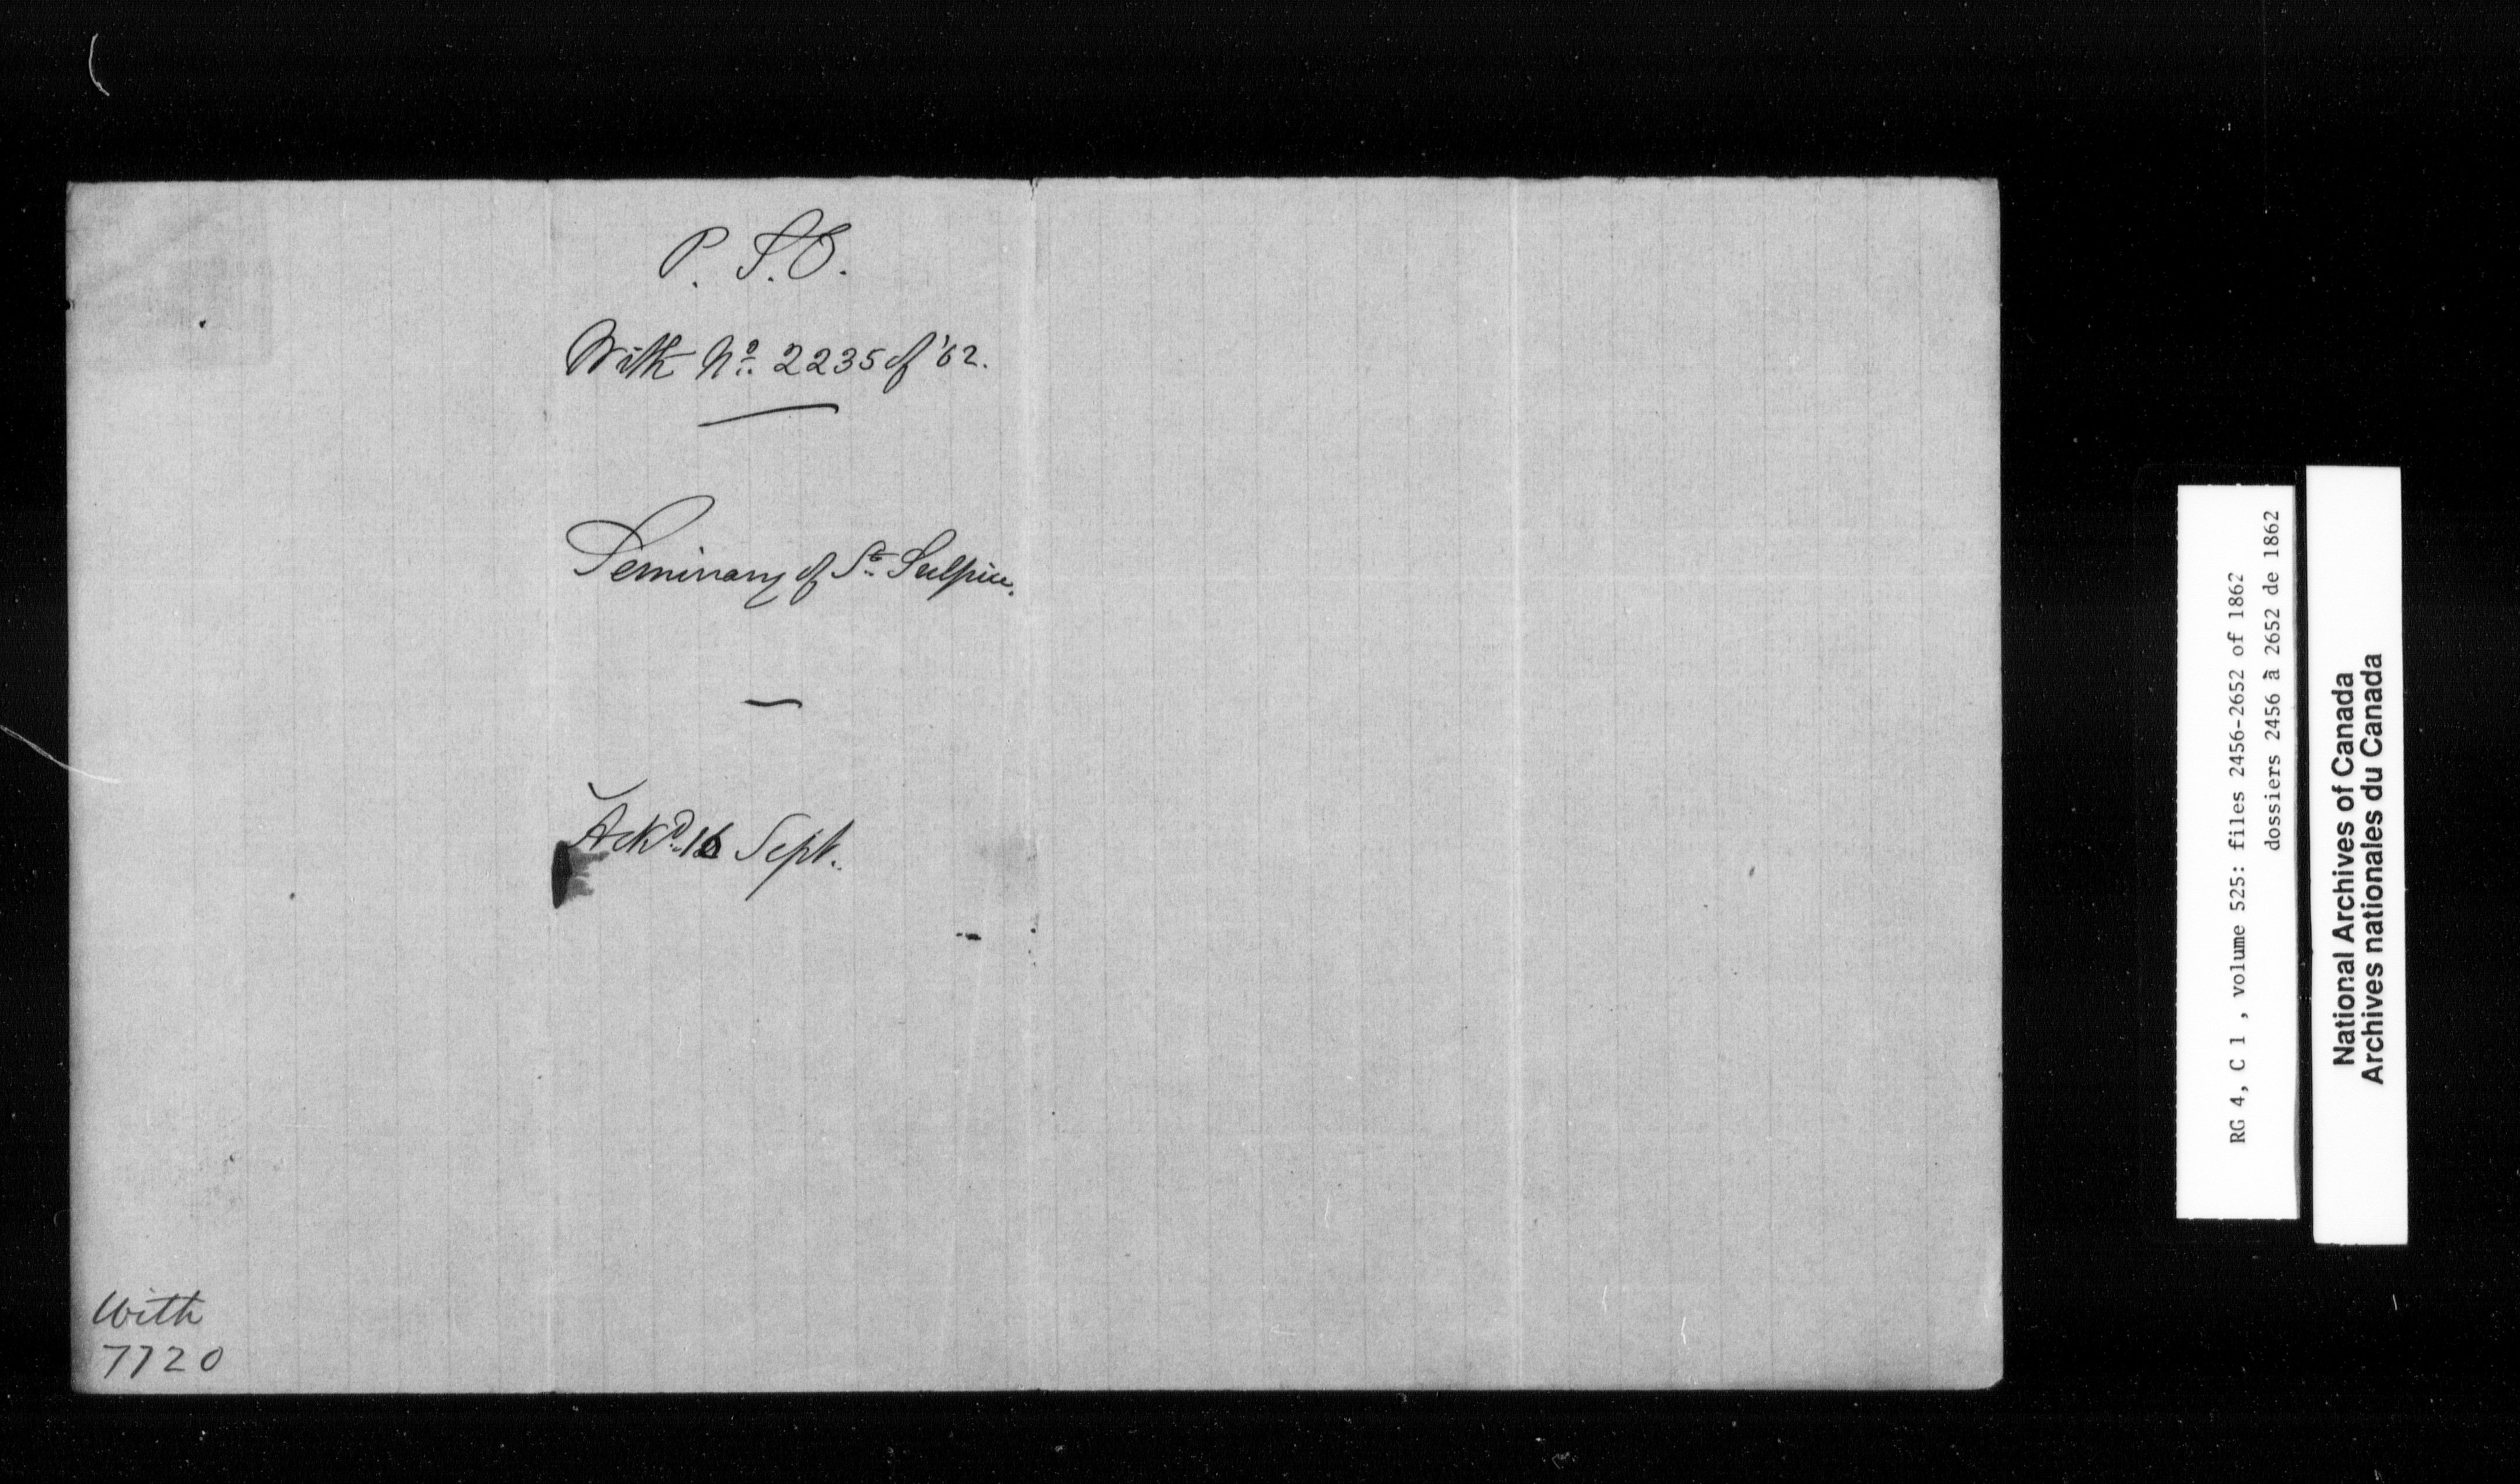 P. S. O.
With No. 2235 of '62.
Seminary of St. Sulpice.
Ackd. 16 Sept.
With
7720
RG 4, C 1 , volume 525: files 2456-2652 of 1862
dossiers 2456 à 2652 de 1862
National Archives of Canada
Archives nationales du Canada